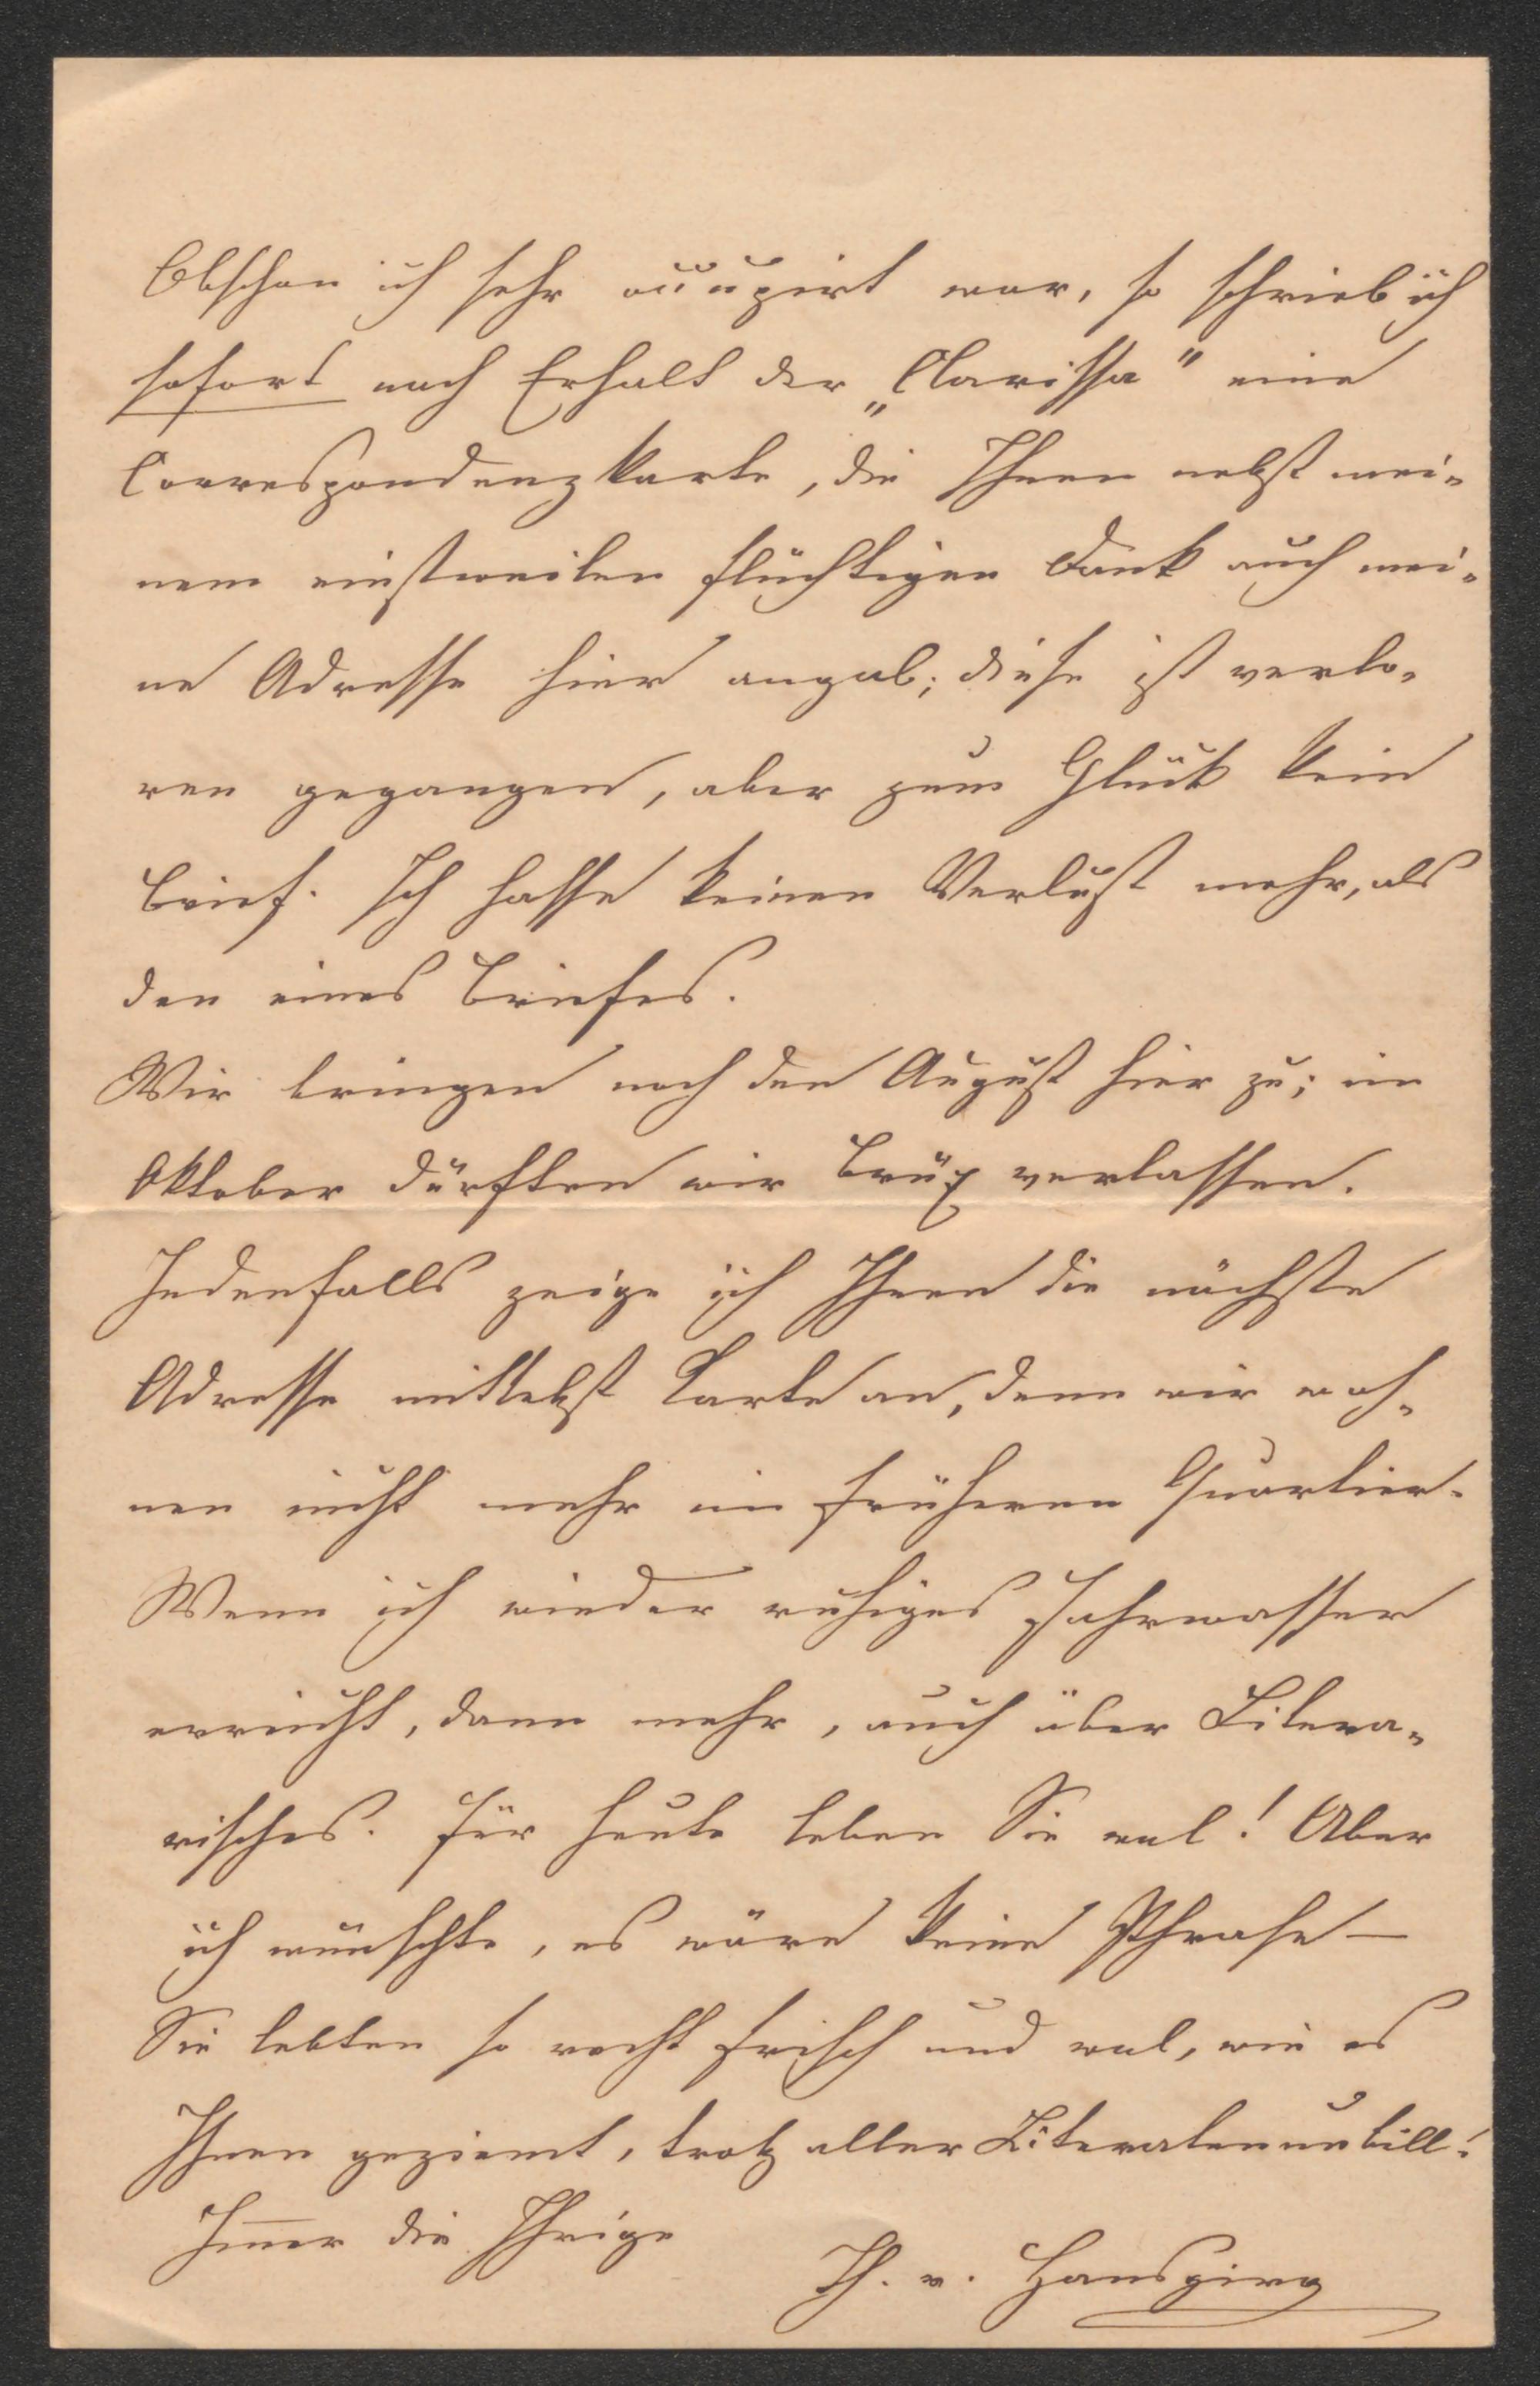 Obschon ich sehr occupirt war, so schrieb ich
sofort nach Erhalt der „Clarissa" eine
Correspondenzkarte, die Ihnen nebst mei-
nem einstweilen flüchtigen Dank auch mei-
ne Adresse hier angab; diese ist verlo-
ren gegangen, aber zum Glück kein
Brief. Ich hasse keinen Verlust mehr, als
den eines Briefes.
Wir bringen noch den August hier zu; im
Oktober dürften wir Brüx verlassen.
Jedenfalls zeige ich Ihnen die nächste
Adresse mittelst Karte an, denn wir woh-
nen nicht mehr im früheren Quartier.
Wenn ich wieder ruhiges Fahrwasser
erreicht, dann mehr, auch über Litera-
risches. Für heute leben Sie wol! Aber
ich wünschte, es wäre keine Phrase —
Sie lebten so recht frisch und wol, wie es
Ihnen geziemt, trotz aller Literatenunbill!
Immer die Ihrige
Th. v. Hansgirg